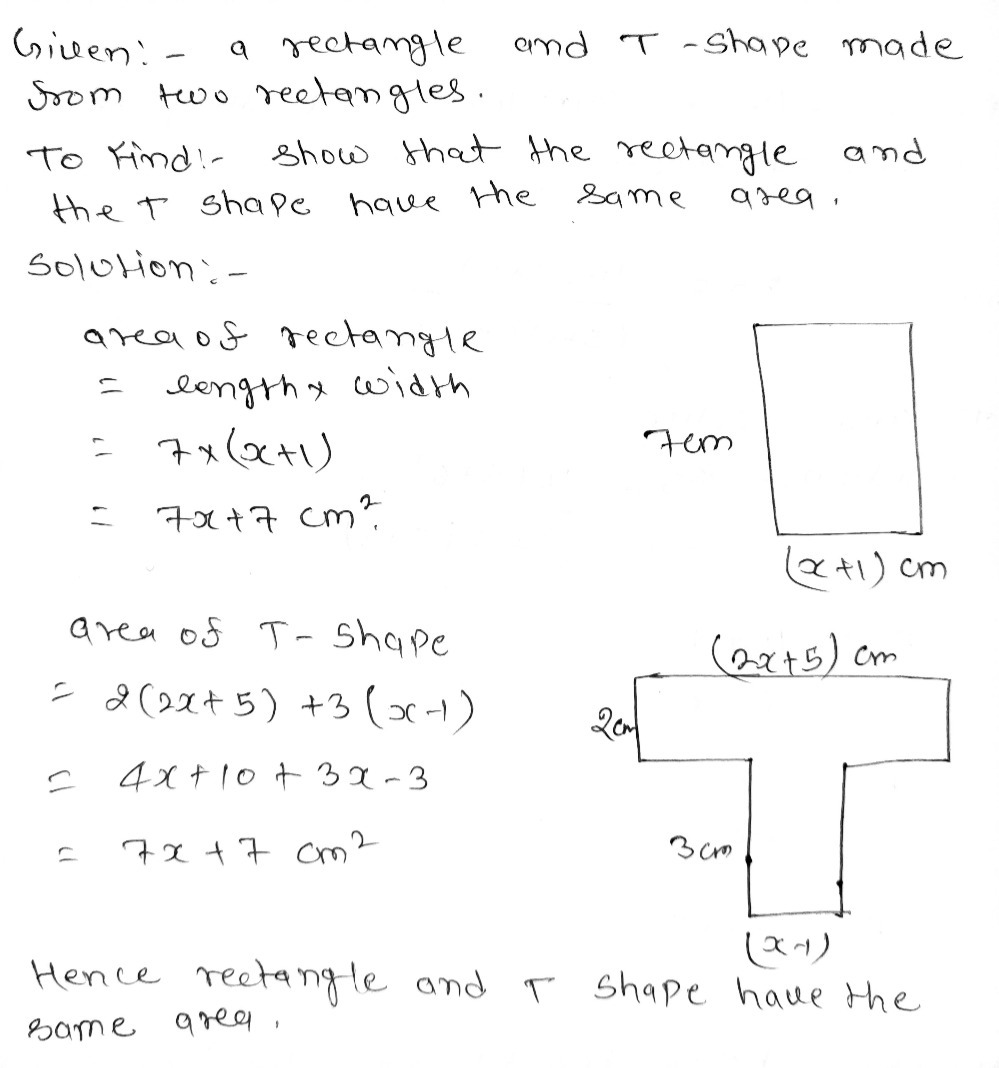 Given:- a rectangle and T-shape made
from two rectangles.
To Find:- show that the rectangle and
the T shape have the same area.
Solution:-
area of rectangle
= length x width
= 7x(x+1)
= 7x+7 cm².
7cm
(x+1) cm
area of T-shape
= 2(2x+5)+3(x-1)
= 4x+10+3x-3
= 7x+7 cm²
(2x+5) cm
2cm
3cm
(x-1)
Hence rectangle and T shape have the
same area.